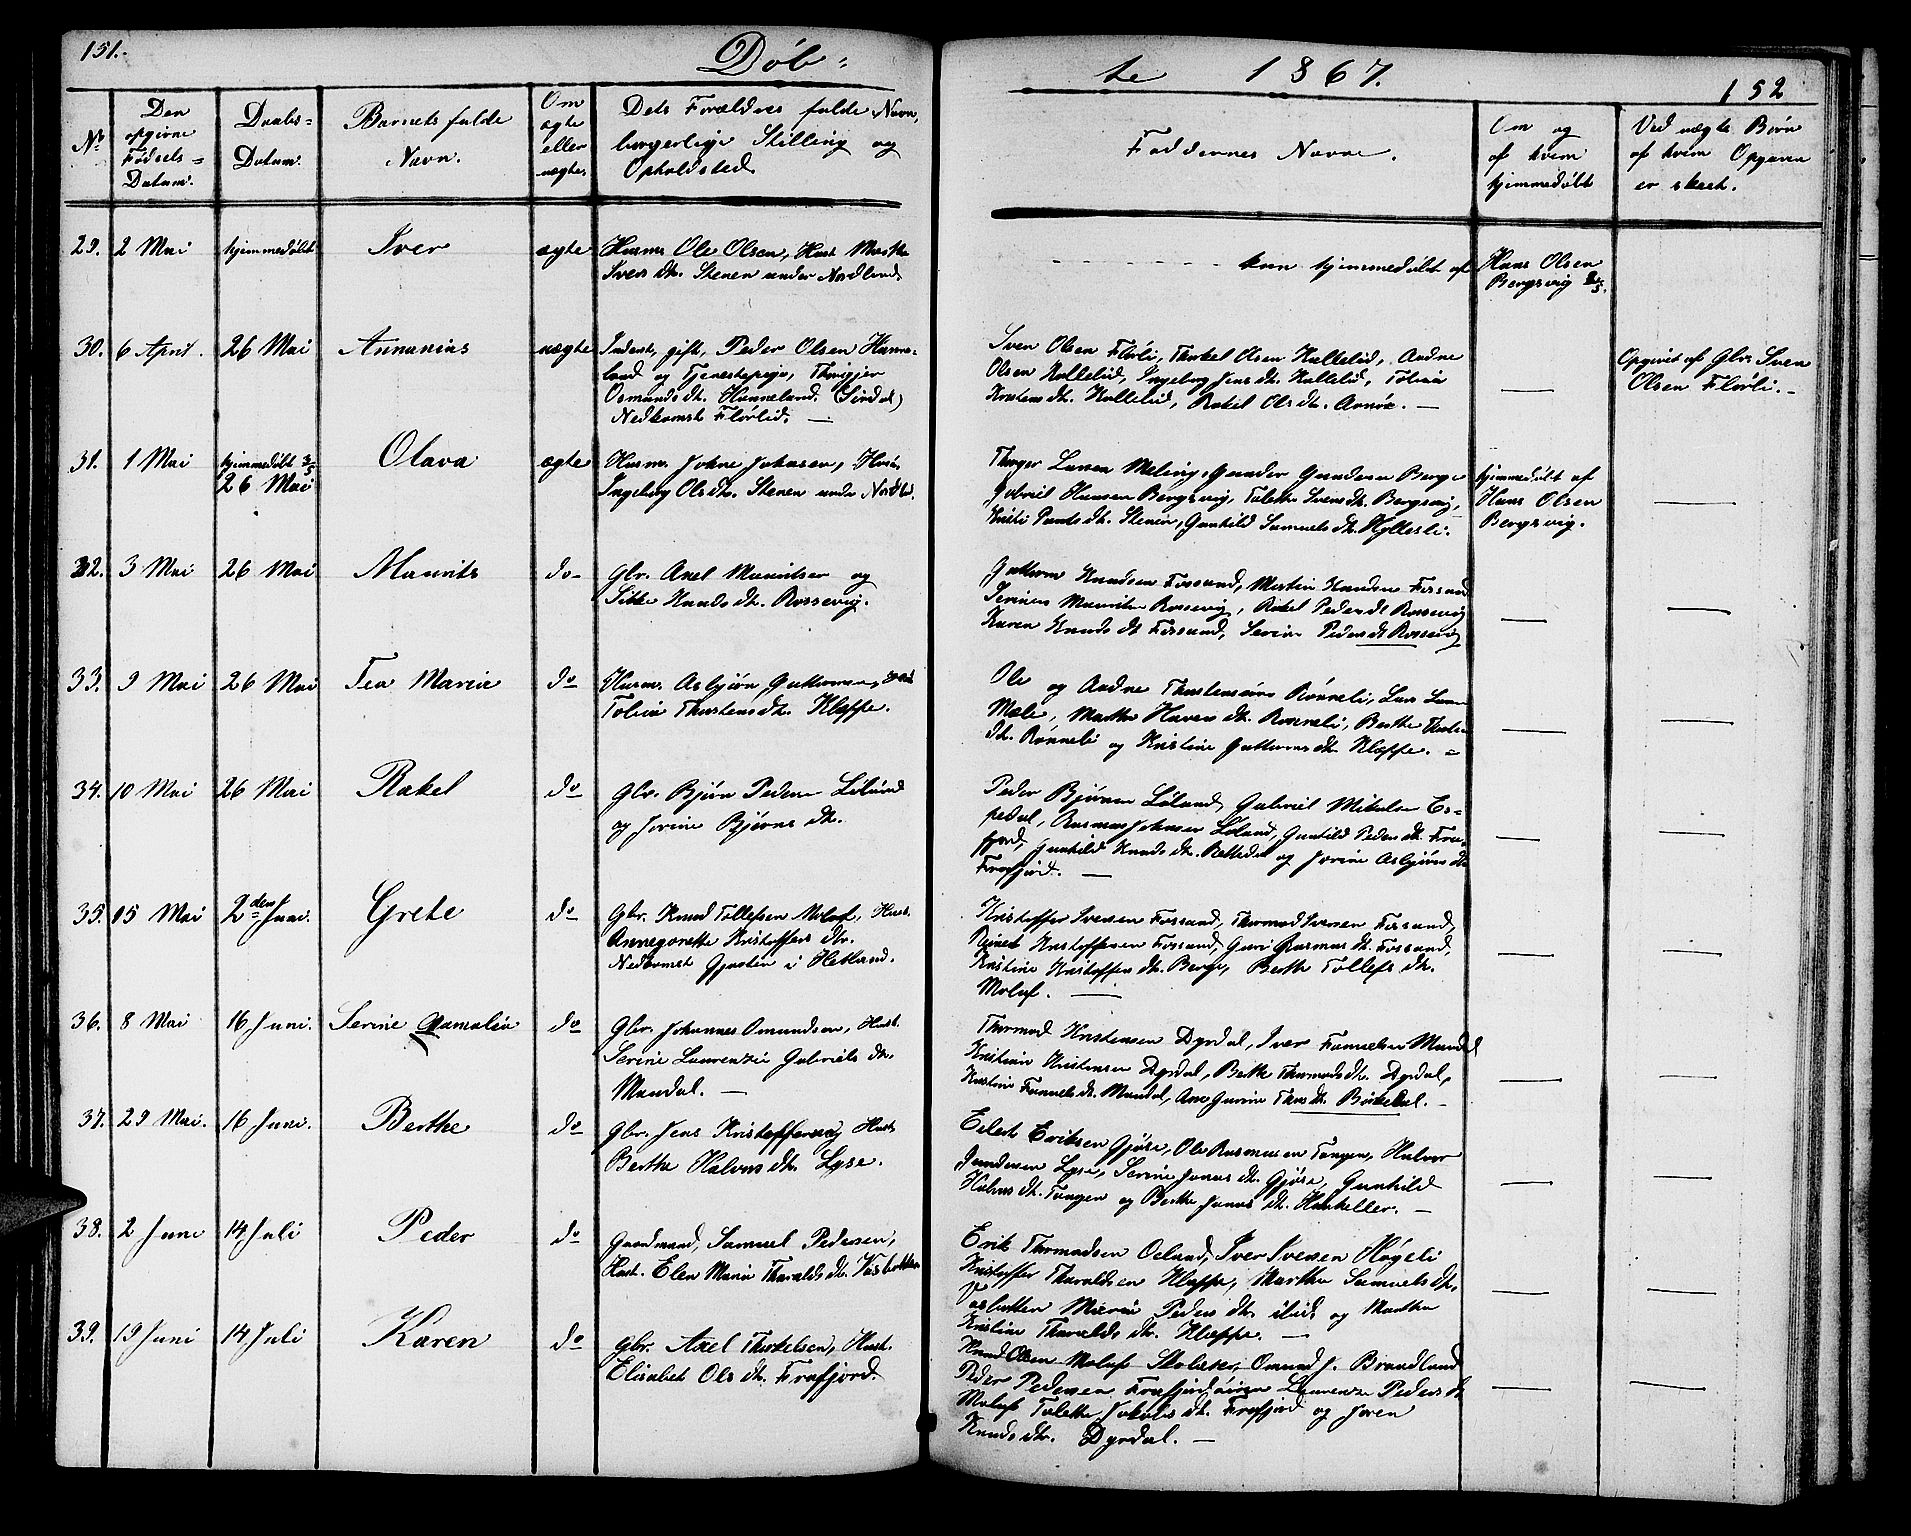 151.
Døb-
te 1867.
152
No
Den opgivne Fødsels-Datum.
Daabs-Datum.
Barnets fulde Navn.
Om ægte eller uægte.
Dets Forældres fulde Navn, borgerlige Stilling og Opholdsted.
Faddernes Navne.
Om og af hvem hjemmedøbt
Ved uægte Børn af hvem Opgaven er skeet.
29. 2 Mai hjemmedøbt Iver ægte Husm. Ole Olsen, Hust. Marthe
Ivers dtr. Stenen under Nordland
kun hjemmedøbt af Hans Olsen
Bergsvig
30. 6 April. 26 Mai Annanias uægte Inderst, gift, Peder Olsen Hanne-
land og Tjenestepige, Thorgjer
Osmunds dtr. Hanneland. (Sirdal)
Nedkomst Flørlid. —
Sven Olsen Flørli, Thorkel Olsen Kallelid, Aadne
Olsen Kallelid, Ingeborg Jens dtr. Kallelid, Tolina
Kristens dtr. Kallelid, Rakel Ols dtr. —
Opgivet af Gbr. Sven
Olsen Flørli. -
31. 1 Mai hjemmedøbt 3/5
26 Mai Olava ægte Husm. Johne Johnsen, Hust.
Ingeborg Ols dtr. Stenen under
Larsen Gunder Gundersen Berge
Gabriel Hansen Bergsvig, Tolette Svens dtr. Bergsvig,
dtr. Stenen, Gunhild Samuels dtr.
hjemmedøbt af
Hans Olsen
Bergsvig.
32. 3 Mai 26 Mai Maurits do Gbr. Axel Mauritsen og
Sitke Knuds dtr. Rossevig.
Guttorm Knudsen Fossand, Martin Knudsen Fossand
Mauritsen Rossevig, Rakel Peders dtr Rossevig
Karen Knuds dtr Fossand, Serine Peders dtr Rossevig
33. 9 Mai 26 Mai Tea Maria do Husm. Asbjørn Guttormsen,
Tolina Thorstens dtr. Klappe.
Ole og Aadne Thorstensen Rønneli, Lars
Mæle, Marthe dtr. Berthe
dtr. Rønneli og Kristine Guttorms dtr. Klappe. -
34. 10 Mai 26 Mai Rakel do Gbr. Bjørn Pedersen Løland
og Jorine Bjørns dtr.
Peder Bjørnsen Løland, Gabriel Mikalsen Es-
pedal, Rasmus Johnsen Løland, Gunhild Peders dtr. Fra-
fjord, Gunhild Knuds dtr. og Jorine Asbjørns dtr
Frafjord. —
35. 15 Mai 2den Juni. Grete do Gbr. Knud Tollefsen Moluf, Hust.
Annegorette Kristoffers dtr.
Nedkomst Gjesten i Hetland.
Kristoffer Svensen Fossand, Thormod Svensen Fossand,
Reinert Kristoffersen Fossand, Guri Rasmus dtr. Fossand,
Kristine Kristoffers dtr. Berge, Berthe Tollefs dtr.
Moluf. —
36. 8 Mai 16 Juni. Serine Aamalia do Gbr. Johannes Omundsen, Hust.
Serine Laurenzie Gabriels dtr.
Mandal. —
Thormod Kristensen Dyrdal, Iver Mandal
Kristian Kristensen Dyrdal, Berthe Thormods dtr. Dyrdal,
Kristine dtr. Mandal, Ane Gurine dtr.
37. 29 Mai. 16 Juni. Berthe do Gbr. Jens Kristoffersen, Hust.
Berthe Halvors dtr. Lyse.
Eilert Eriksen Gjøse, Ole Rasmussen Tangen, Halvor
Gundersen Lyse, Serine Jonas dtr. Gjøse, Gunhild
Halvors dtr. Tangen og Berthe Jonas dtr. —
38. 2 Juni 14 Juli Peder do Gaardmand, Samuel Pedersen,
Hust. Elen Maria Tharalds dtr.
Erik Thormodsen Oeland, Iver Svensen
Kristoffer Tharaldsen Klappe, Marthe Samuels dtr.
Maria Peders dtr. og Marthe
Kristine Tharalds dtr. Klappe. —
39. 19 Juni 14 Juli Karen do Gbr. Axel Thorkelsen, Hust.
Elisabet Ols dtr. Frafjord.
Knud Olsen Moluf Skolelærer, Omund J. Brandland
Peder Pedersen Frafjord Laurenze Peders dtr
Moluf Tolette Jakobs dtr. Frafjord og Joren
Knuds dtr. Dyrdal. —